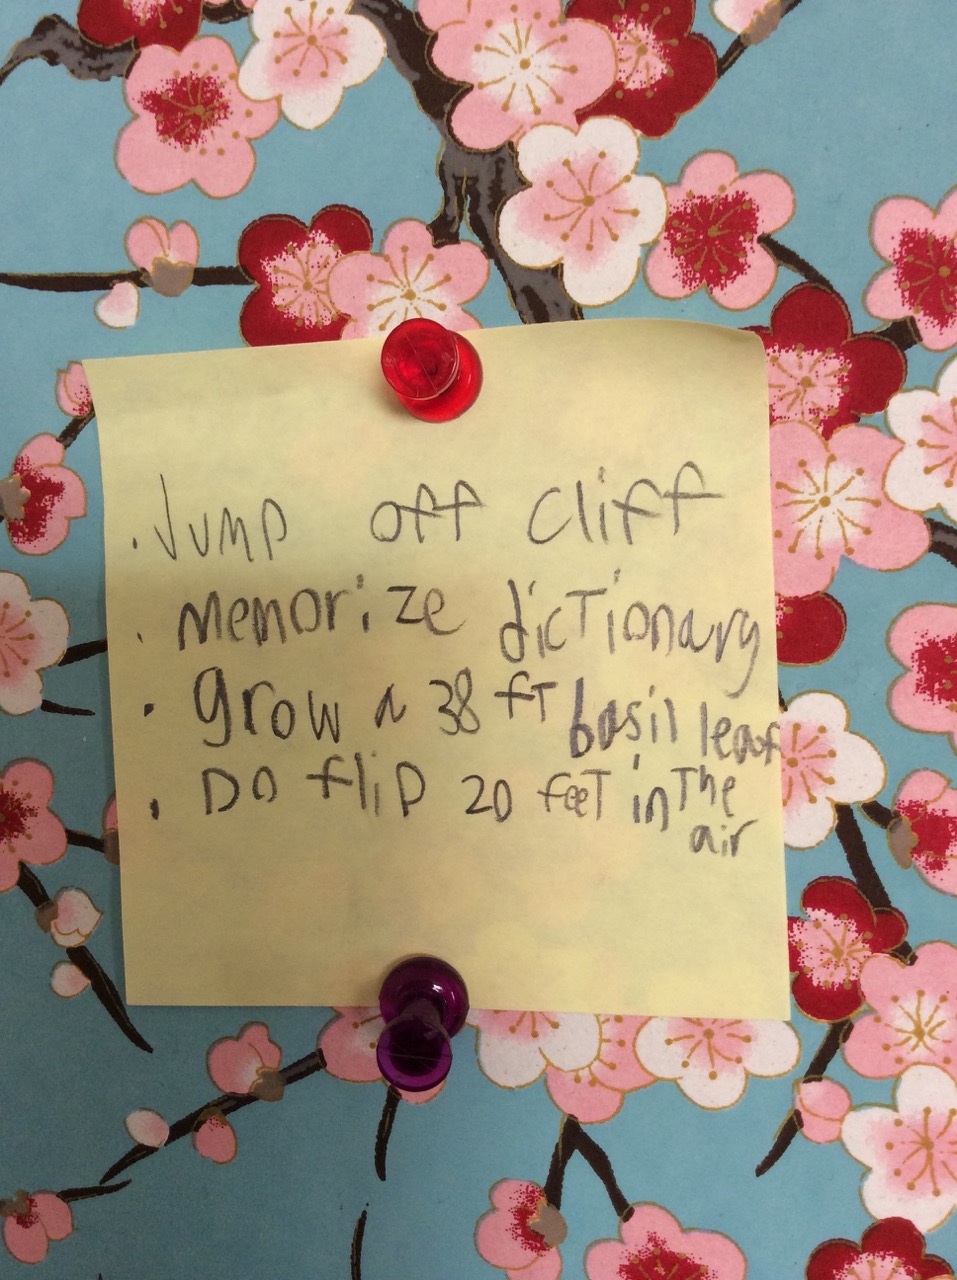 . Jump off cliff
. Memorize dictionary
. grow a 38 ft basil leaf
. Do flip 20 feet in the
air